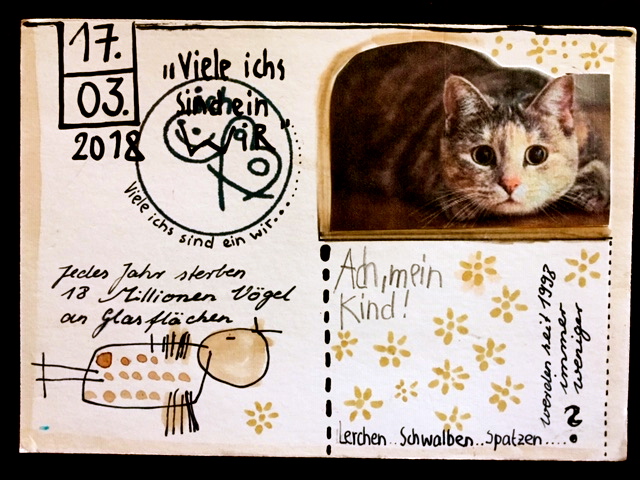 17.
03.
2018
"Viele ichs
sind ein
wir"
Viele ichs sind ein wir...
Jedes Jahr sterben
18 Millionen Vögel
an Glasflächen
Ach, mein
Kind!
werden seit 1998
immer
weniger
?
Lerchen.. Schwalben.. Spatzen....